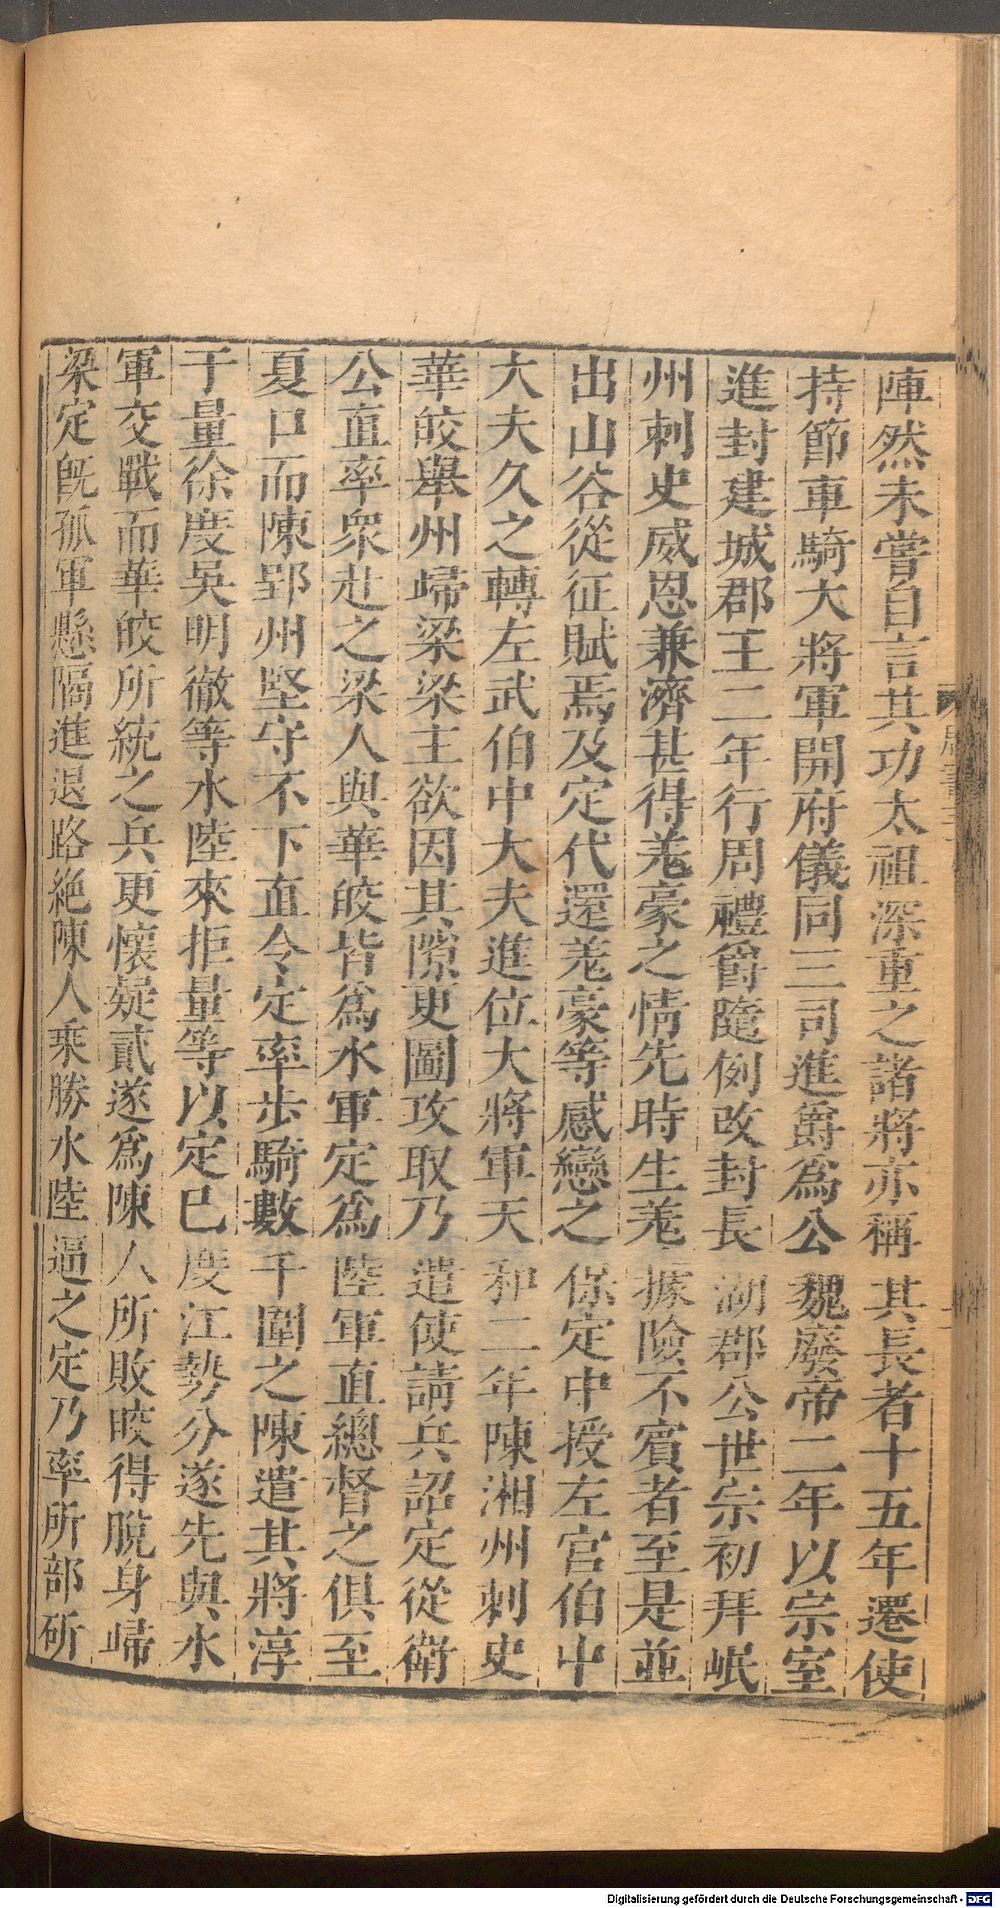 陣然未嘗自言其功太祖深重之諸將亦稱其長者十五年遷使
持節車騎大將軍開府儀同三司進爵爲公魏廢帝二年以宗室
進封建城郡王二年行周禮爵隨例改封長湖郡公世宗初拜岷
州刺史威恩兼濟甚得羌豪之情先時生羌據險不賓者至是並
出山谷從征賦焉及定代還羌豪等感戀之保定中授左宮伯中
大夫久之轉左武伯中大夫進位大將軍天和二年陳湘州刺史
華皎舉州歸梁梁主欲因其隙更圖攻取乃遣使請兵詔定從衛
公直率眾赴之梁人與華皎皆爲水軍定爲陸軍直總督之俱至
夏口而陳郢州堅守不下直令定率步騎數千圍之陳遣其將淳
于量徐度吳明徹等水陸來拒量等以定已度江勢分遂先與水
軍交戰而華皎所統之兵更懷疑貳遂爲陳人所敗皎得脫身歸
梁定既孤軍懸隔進退路絶陳人乘勝水陸逼之定乃率所部斫
Digitalisierung gefördert durch die Deutsche Forschungsgemeinschaft - DFG